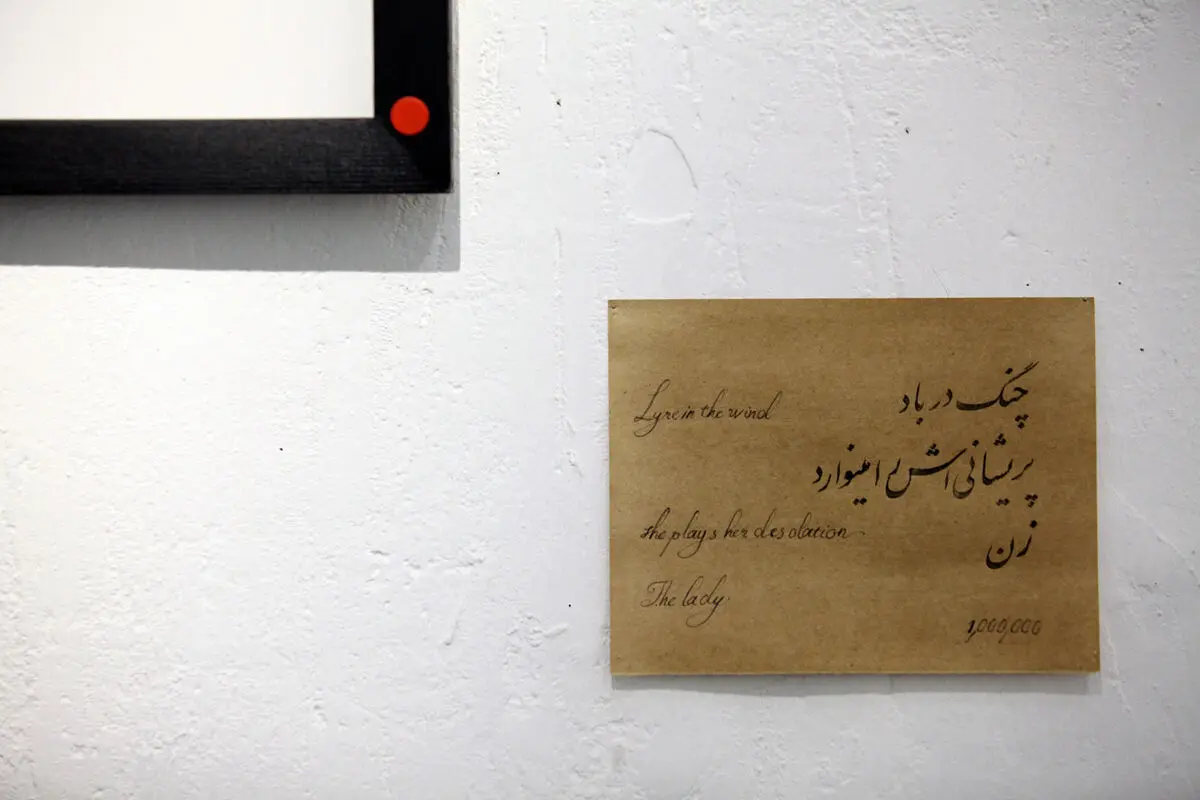 چنگ در باد
Lyre in the wind
پریشانی اش را مینوازد
she plays her desolation
زن
The lady.
1,000,000